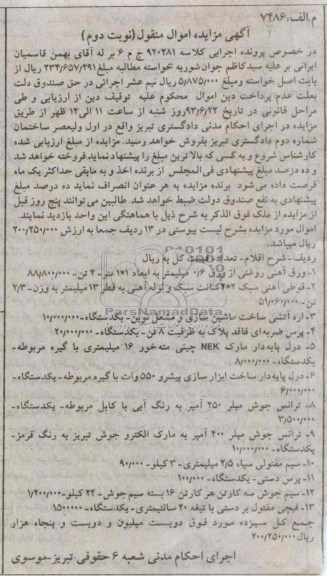 م.الف:۷۴۸۶
آگهی مزایده اموال منقول(نوبت دوم)
در خصوص پرونده اجرایی کلاسه ۹۲۰۲۸۱ ج م ۶ بر له آقای بهمن قاسمیان
ایرانی بر علیه سیدکاظم جوان شوربه خواسته مطالبه مبلغ۲۳۴/۶۵۷/۲۹۱ ریال از
بابت اصل خواسته ومبلغ ۵/۸۷۵/۰۰۰ ریال نیم عشر اجرائی در حق صندوق دولت
بعلت عدم پرداخت دین اموال محکوم علیه توقیف دین از ارزیابی و طی
مراحل قانونی در تاریخ ۹۳/۶/۲۲روز شنبه از ساعت ۱۱ الی۱۲ ظهر از طریق
مزایده در اجرای احکام مدنی دادگستری تبریز واقع در اول ولیعصر ساختمان
شماره دوم دادگستری تبریز بفروش خواهد رسید. مزایده از مبلغ ارزیابی شده
کارشناس شروع و به کسی که بالاترین مبلغ را پیشنهاد نماید فروخته خواهد شد
و ده درصد مبلغ پیشنهادی فی‌المجلس از برنده اخذ و به مابقی حداکثر یک ماه
فرصت داده می‌شود برنده مزایده به هر عنوان انصراف نماید ده درصد مبلغ
پیشنهادی به نفع صندوق دولت ضبط خواهد شد. طالبین می‌توانند پنج روز قبل
از مزایده از ملک فوق الذکر به شرح ذیل با هماهنگی این واحد بازدید نمایند.
اموال مورد مزایده بشرح لیست پیوستی در ۱۳ ردیف جمعا به ارزش ۲۰۰/۲۵۰/۰۰۰
ریال میباشد.
ردیف- شرح اقلام- تعداد- قیمت کل به ریال
۱-ورق آهنی روغنی از ورق ۰/۶ میلیمتر به ابعاد ۱*۱ متر-۴ تن-۸۸/۸۰۰/۰۰۰
۲-قوطی آهنی سبک ۲*۴کانت سبک و لوله آهنی به قطر ۱۳ میلیمتر به وزن-۲/۳
تن-۵۱/۰۶۰/۰۰۰
۳-اره آتشی ساخت ماشین سازی و مشعل نوین-یکدستگاه-۱۰/۰۰۰/۰۰۰
۴-پرس ضربه‌ای فاقد پلاک به ظرفیت ۸ تن-یکدستگاه-۲۰/۰۰۰/۰۰۰
۵-دریل پایه‌دار مارک NEK چینی مته‌خور ۱۶ میلیمتری با گیره مربوطه-
یکدستگاه-۸/۰۰۰/۰۰۰
۶-دریل پایه‌دار ساخت ابزار سازی پیشرو ۵۵۰ وات با گیره مربوطه-یکدستگاه-
۶/۰۰۰/۰۰۰
۸-ترانس جوش میلر ۲۵۰ آمپر به رنگ آبی با کابل مربوطه-یکدستگاه-
۳/۵۰۰/۰۰۰
۹-ترانس جوش میلر ۴۰۰ آمپر به مارک الکترو جوش تبریز به رنگ قرمز-
یکدستگاه-۱۰/۰۰۰/۰۰۰
۱۰-سیم مفتولی سیاه ۲/۵ میلیمتری-۳ کیلو-۹۰/۰۰۰
۱۱-پرس دستی-یکدستگاه-۱۰۰/۰۰۰
۱۲-سیم جوش سه کارتن هر کارتن ۱۶ بسته سیم جوش-۲۴ کیلو-۱/۲۰۰/۰۰۰
۱۳-قیچی مفتول بر دستی با تیغه ۲۰ سانتیمتری-یکدستگاه-۱۵۰۰۰۰۰
جمع کل سیزده مورد فوق دویست میلیون و دویست و پنجاه هزار
ریال۲۰۰/۲۵۰/۰۰۰
اجرای احکام مدنی شعبه ۶ حقوقی تبریز-موسوی
ParsNamadData